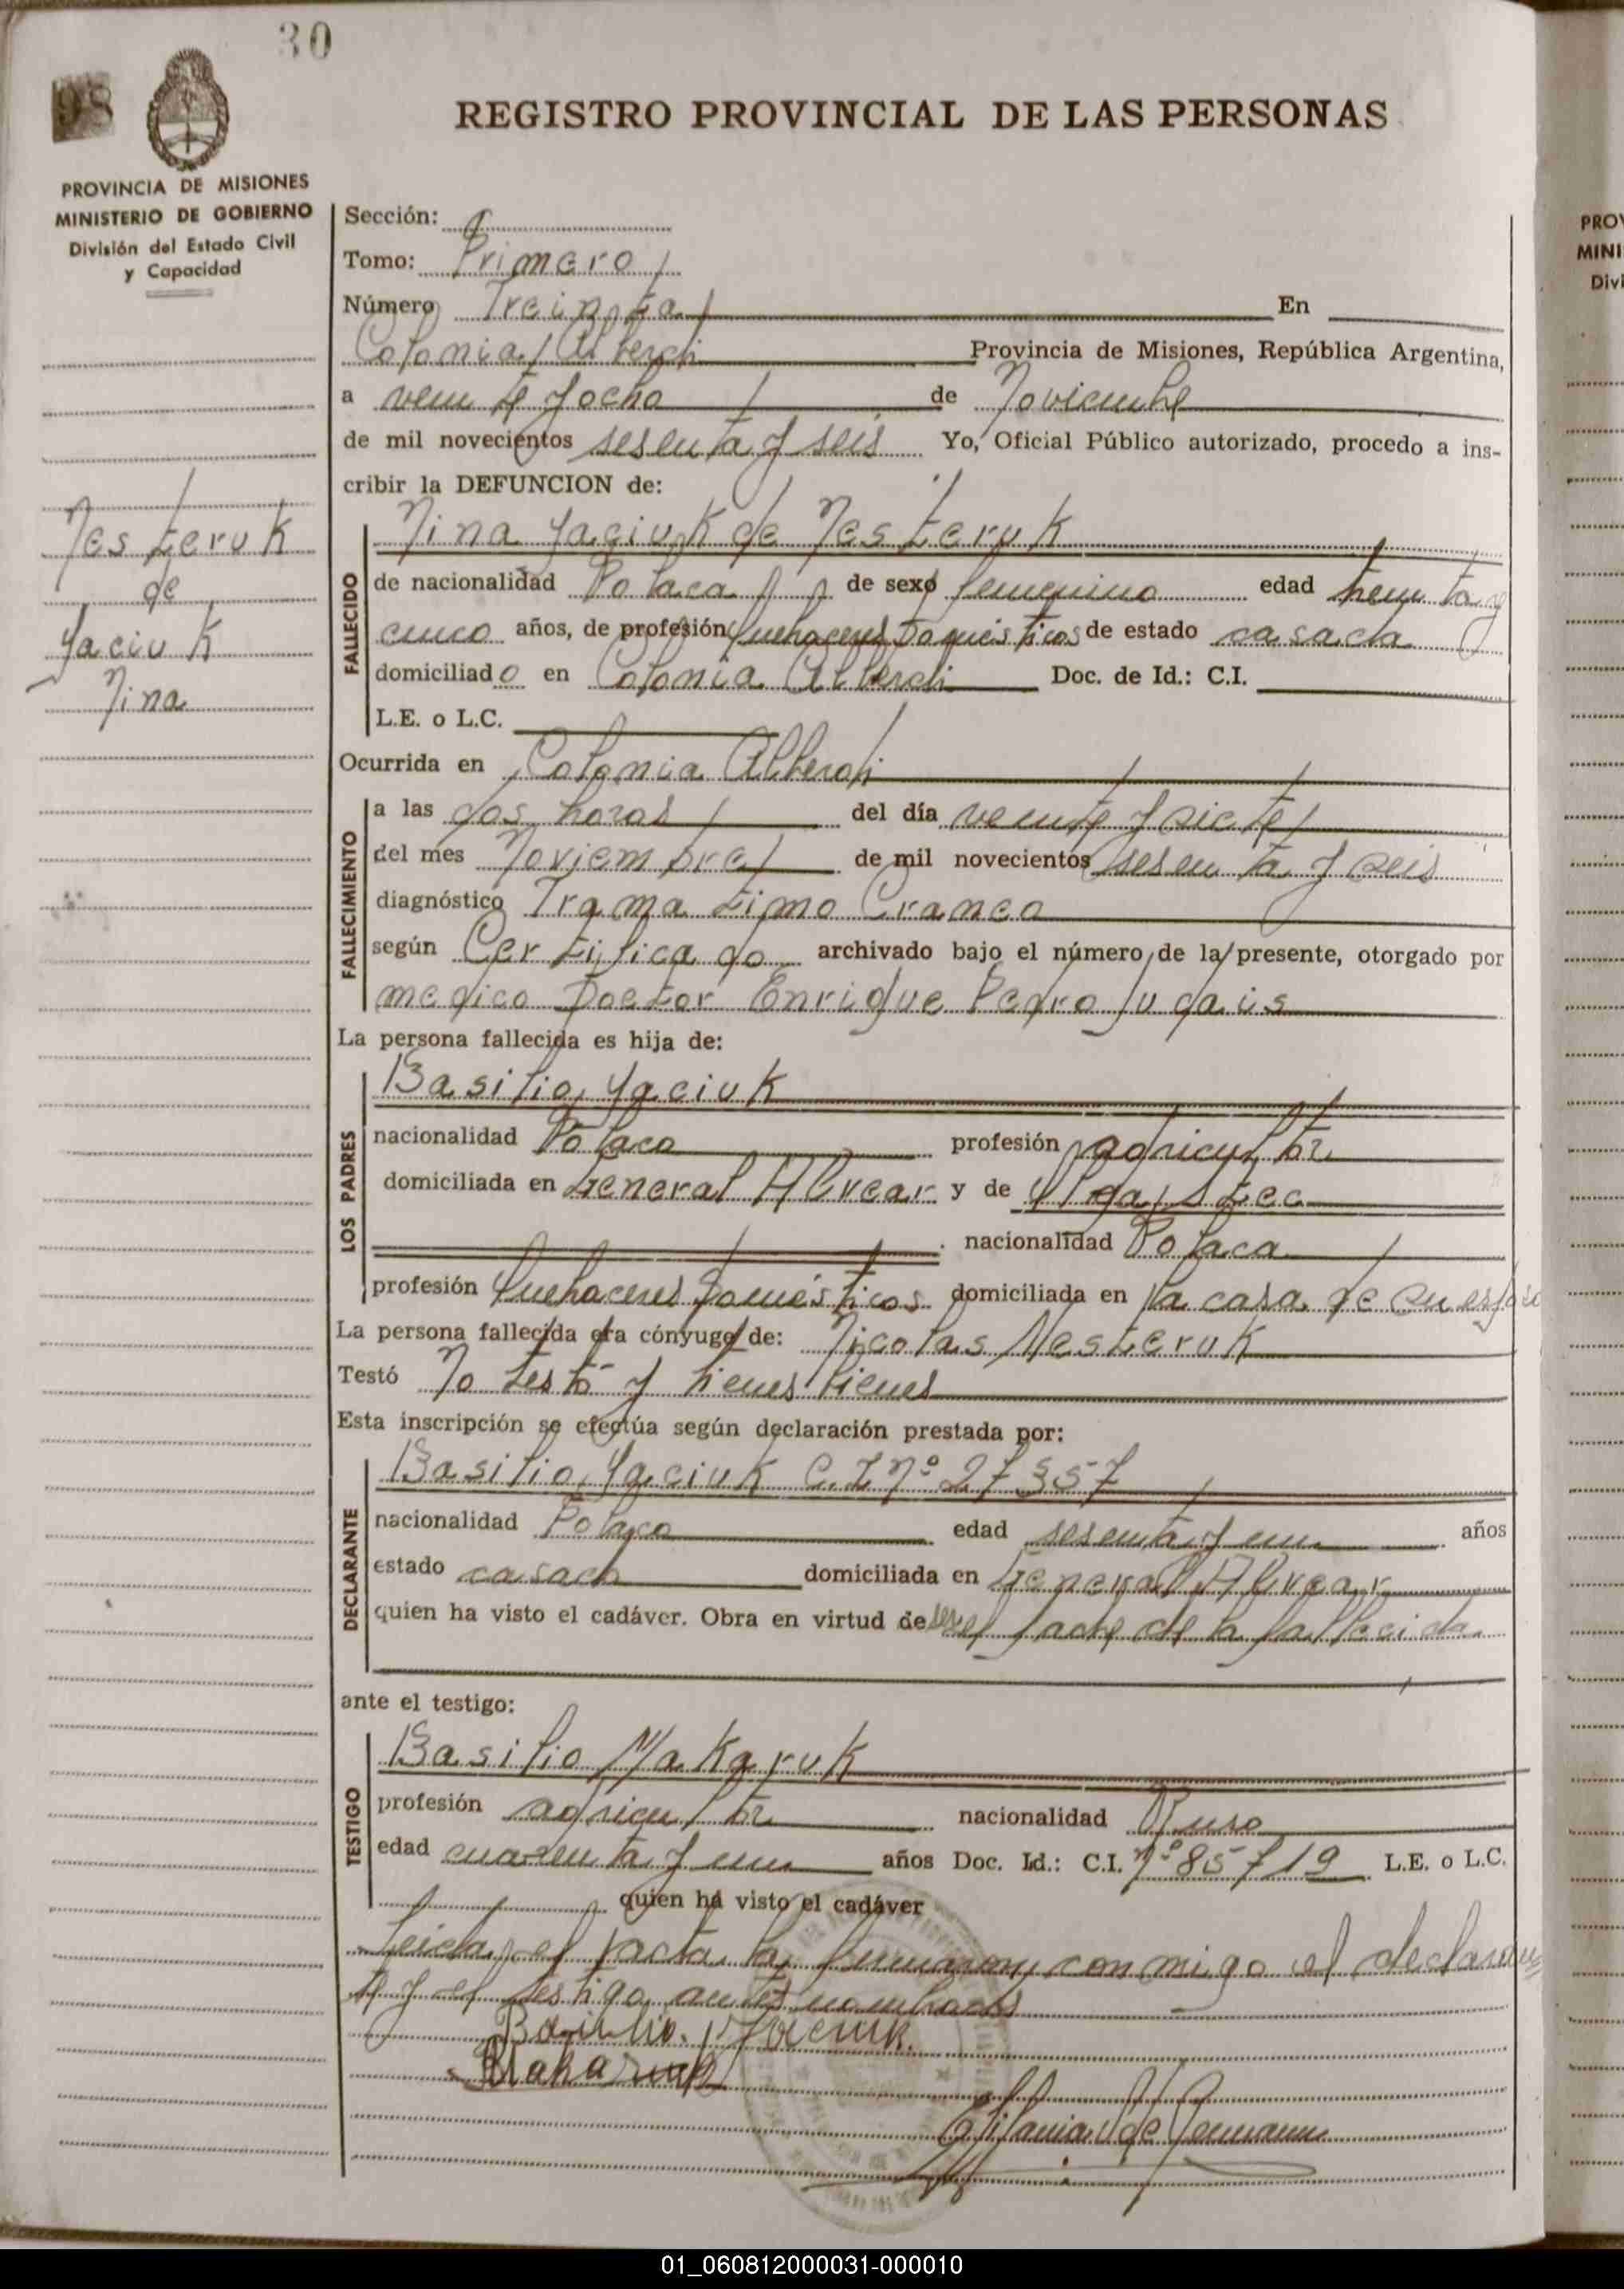 30
98
REGISTRO PROVINCIAL DE LAS PERSONAS
PROVINCIA DE MISIONES
MINISTERIO DE GOBIERNO
División del Estado Civil
y Capacidad
Nesteruk
de
Yaciuk
Nina
Sección:
Tomo: Primero
Número Treinta En
Colonia Alberdi Provincia de Misiones, República Argentina,
a veinte y ocho de Noviembre
de mil novecientos sesenta y seis Yo, Oficial Público autorizado, procedo a ins-
cribir la DEFUNCION de:
FALLECIDO
Nina Yaciuk de Nesteruk
de nacionalidad Polaca de sexo femenino edad treinta y
cinco años, de profesión quehaceres Domésticos de estado casada
domiciliado en Colonia Alberdi Doc. de Id.: C.I.
L.E. o L.C.
Ocurrida en Colonia Alberdi
FALLECIMIENTO
a las dos horas del día veinte y siete
del mes Noviembre de mil novecientos sesenta y seis
diagnóstico Tramatismo Craneo
según Certificado archivado bajo el número de la presente, otorgado por
medico Doctor Enrique Pedro
La persona fallecida es hija de:
LOS PADRES
Basilio Yaciuk
nacionalidad Polaco profesión agricultor
domiciliada en General Alvear y de Olga
nacionalidad Polaca
profesión quehaceres Domésticos domiciliada en la casa de su esposo
La persona fallecida era cónyuge de: Nicolas Nesteruk
Testó No testó y tienes bienes
Esta inscripción se efectúa según declaración prestada por:
DECLARANTE
Basilio Yaciuk C.I Nº 27357
nacionalidad Polaco edad sesenta y un años
estado casado domiciliada en General Alvear
quien ha visto el cadáver. Obra en virtud de ser el padre de la fallecida
ante el testigo:
TESTIGO
Basilio Makaruk
profesión agricultor nacionalidad Ruso
edad cuarenta y un años Doc. Id.: C.I. Nº 85719 L.E. o L.C.
quien ha visto el cadáver
Leida el acta la firmaron conmigo el declaran
te y el testigo antes nombrados
Basilio Yaciuk.
Makaruk
01_060812000031-000010